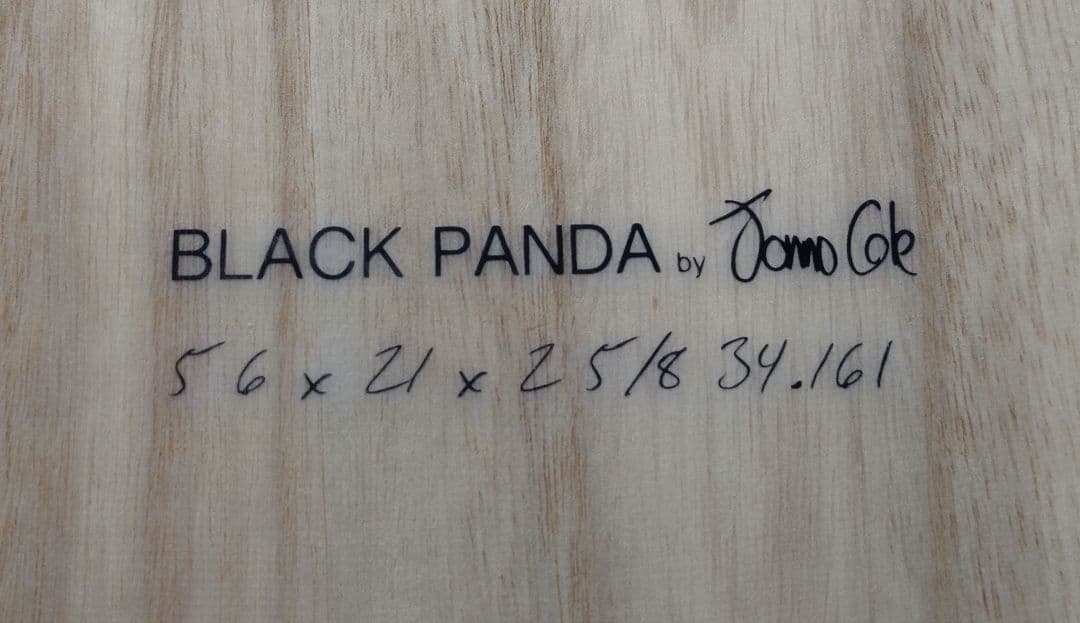 BLACK PANDA by Jomo Cole
5 6 x 21 x 2 5/8 34.161